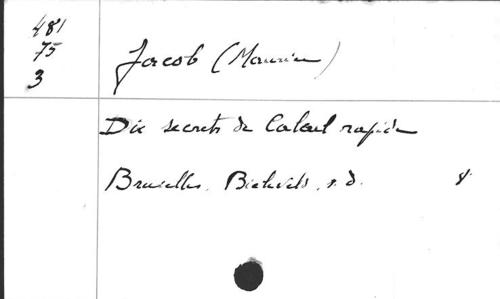 481
75
3
Jacob (Maurice)
Dix secrets de Calcul rapide
Bruxelles, s.d. 8°